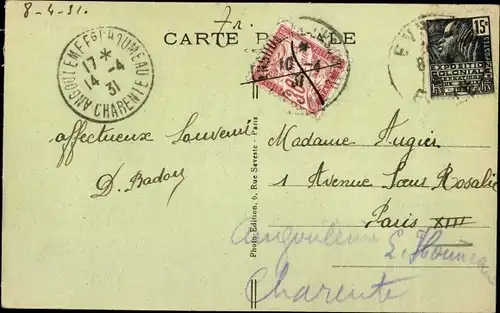 8-4-31.
CARTE POSTALE
ANGOULEME FG L'HOUMEAU
17 *
14 -4
31
CHARENTE
10 -4
31
30
15c
EXPOSITION
COLONIALE
affectueux Souvenir
D. Badou
Photo-Edition, 6, Rue Seveste - Paris
Madame Augier
1 Avenue Sœur Rosalie
Paris XIII
Angoulème
L. Houmeau
Charente